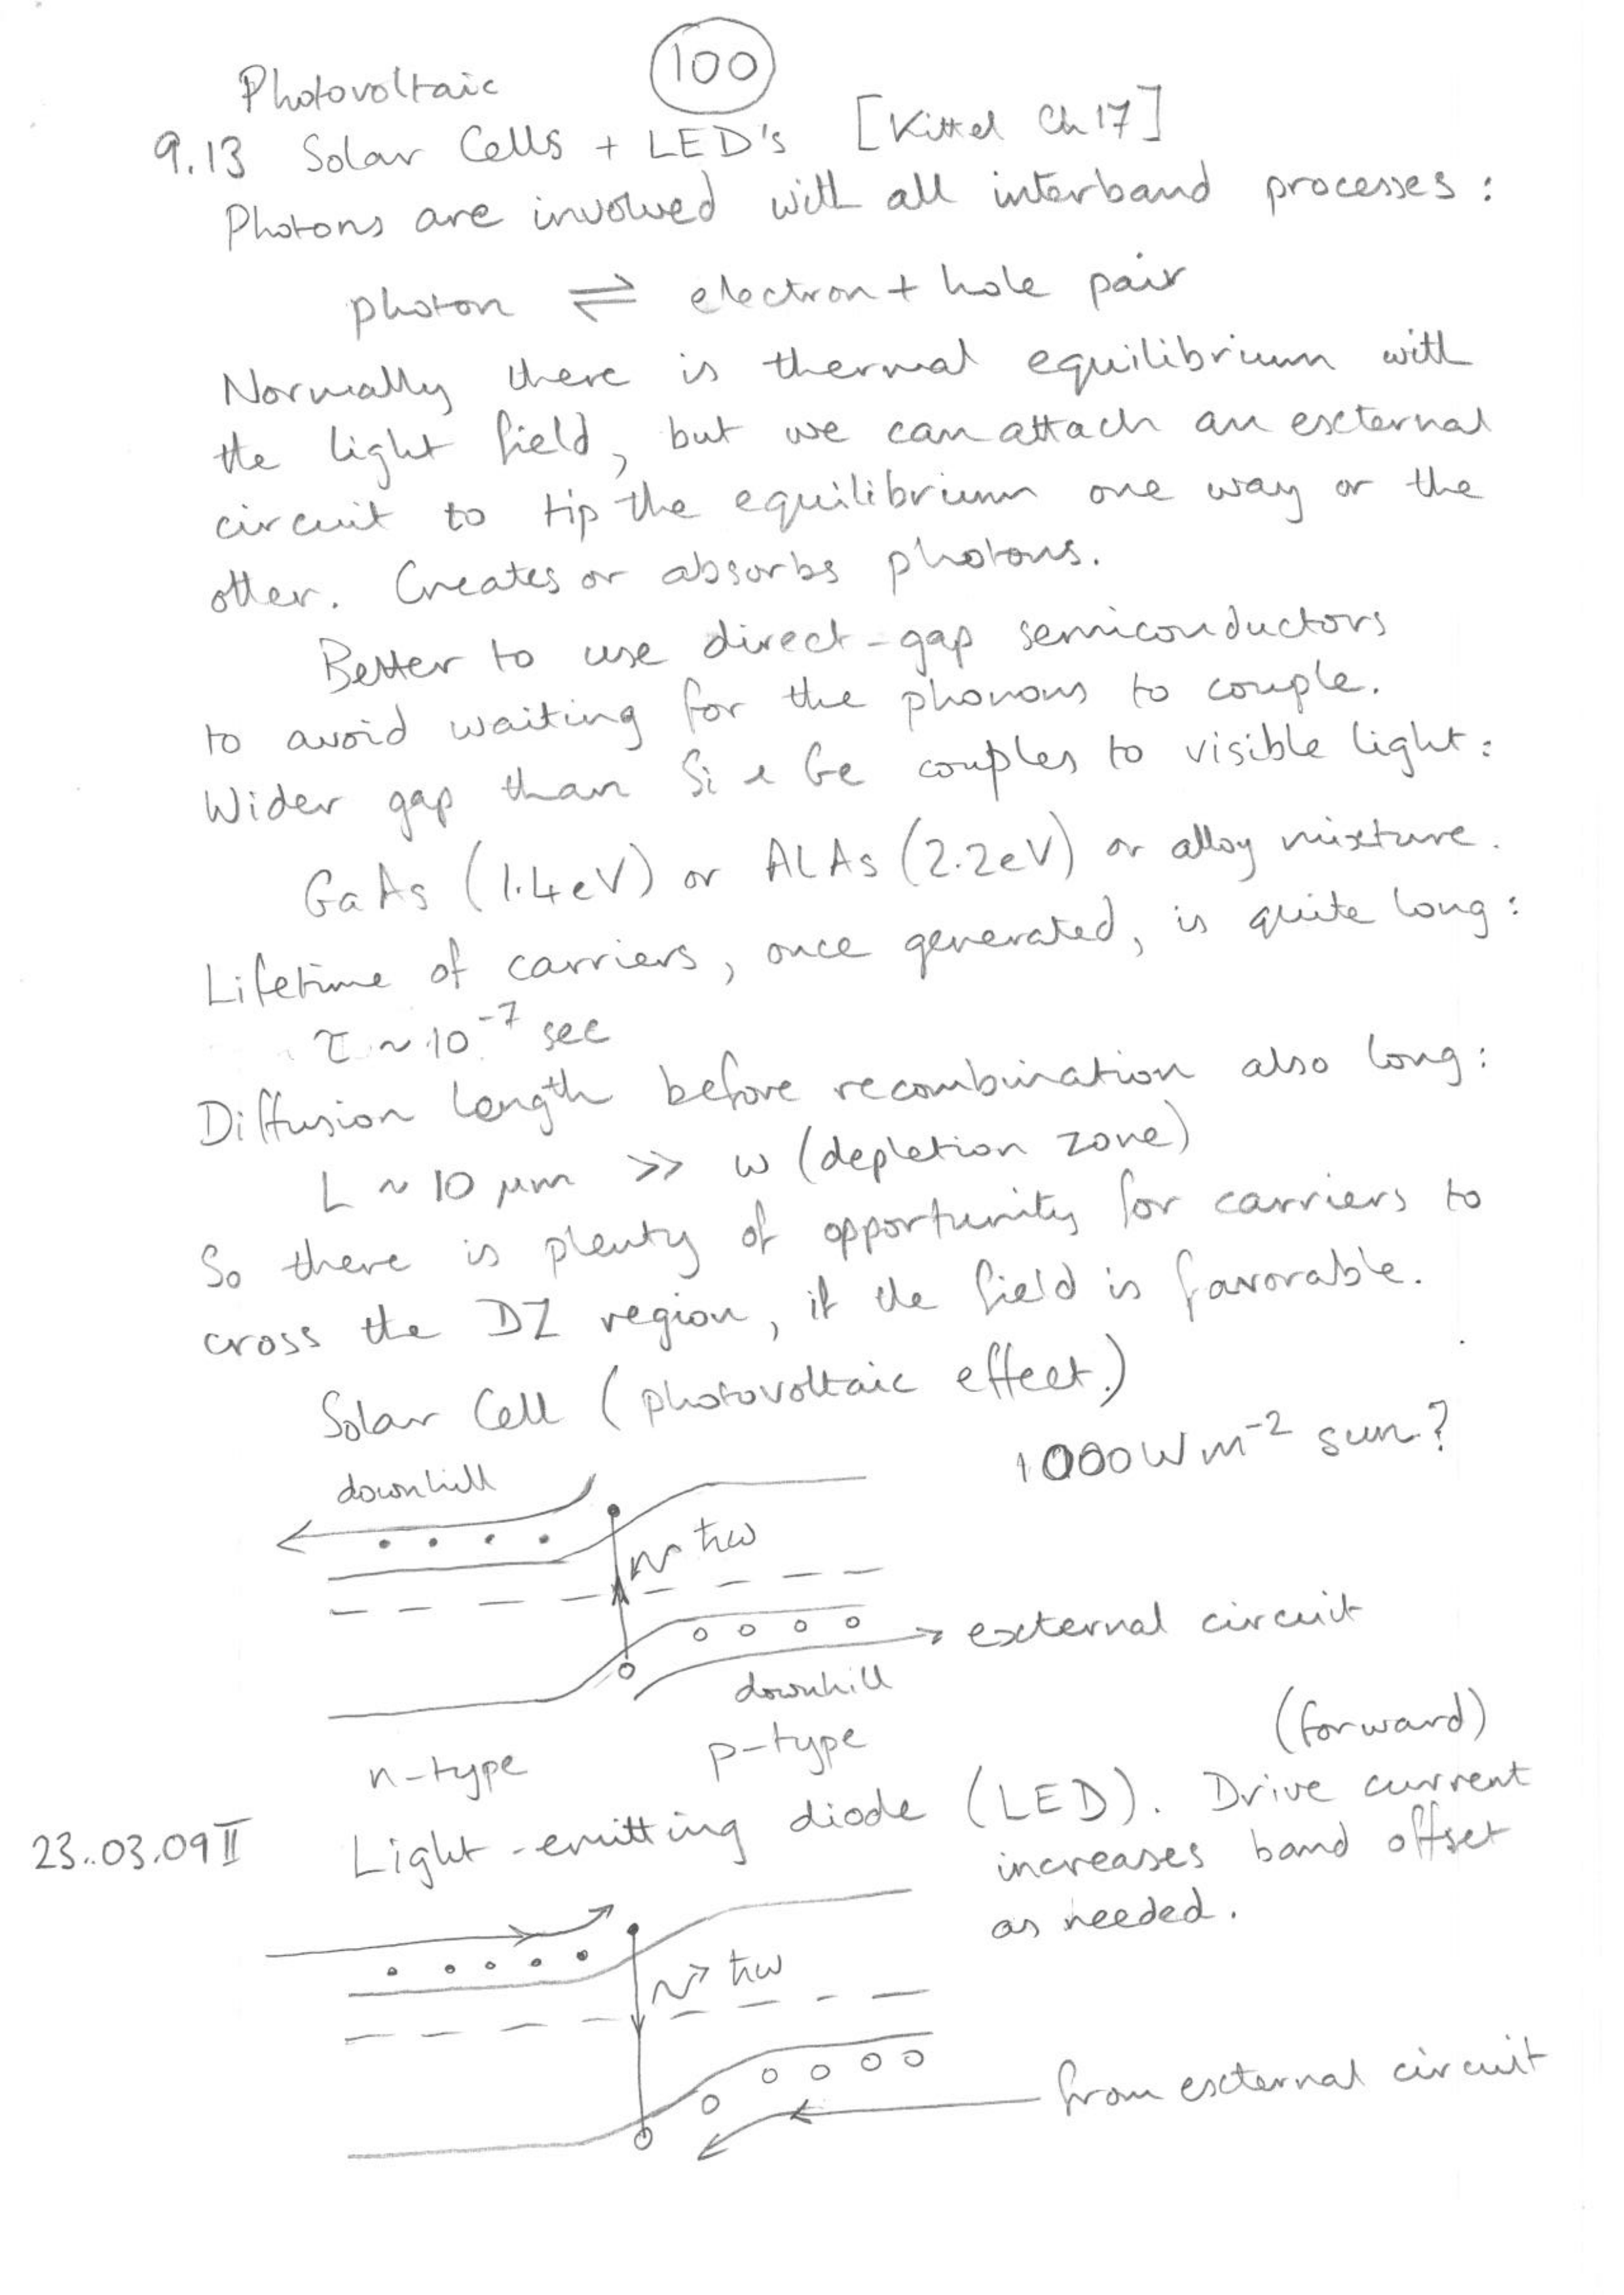 100
Photovoltaic
9.13 Solar Cells + LED's [Kittel Ch 17]
Photons are involved with all interband processes:
photon ⇌ electron + hole pair
Normally there is thermal equilibrium with
the light field, but we can attach an external
circuit to tip the equilibrium one way or the
other. Creates or absorbs photons.
Better to use direct-gap semiconductors
to avoid waiting for the phonons to couple.
Wider gap than Si & Ge couples to visible light:
GaAs (1.4eV) or AlAs (2.2eV) or alloy mixture.
Lifetime of carriers, once generated, is quite long:
τ ~ 10⁻⁷ sec
Diffusion length before recombination also long:
L ~ 10 μm ≫ w (depletion zone)
So there is plenty of opportunity for carriers to
cross the DZ region, if the field is favorable.
Solar Cell (photovoltaic effect.)
1000Wm⁻² sun?
downhill
ħω
external circuit
downhill
n-type p-type
(forward)
23.03.09 II Light-emitting diode (LED). Drive current
increases band offset
as needed.
ħω
from external circuit